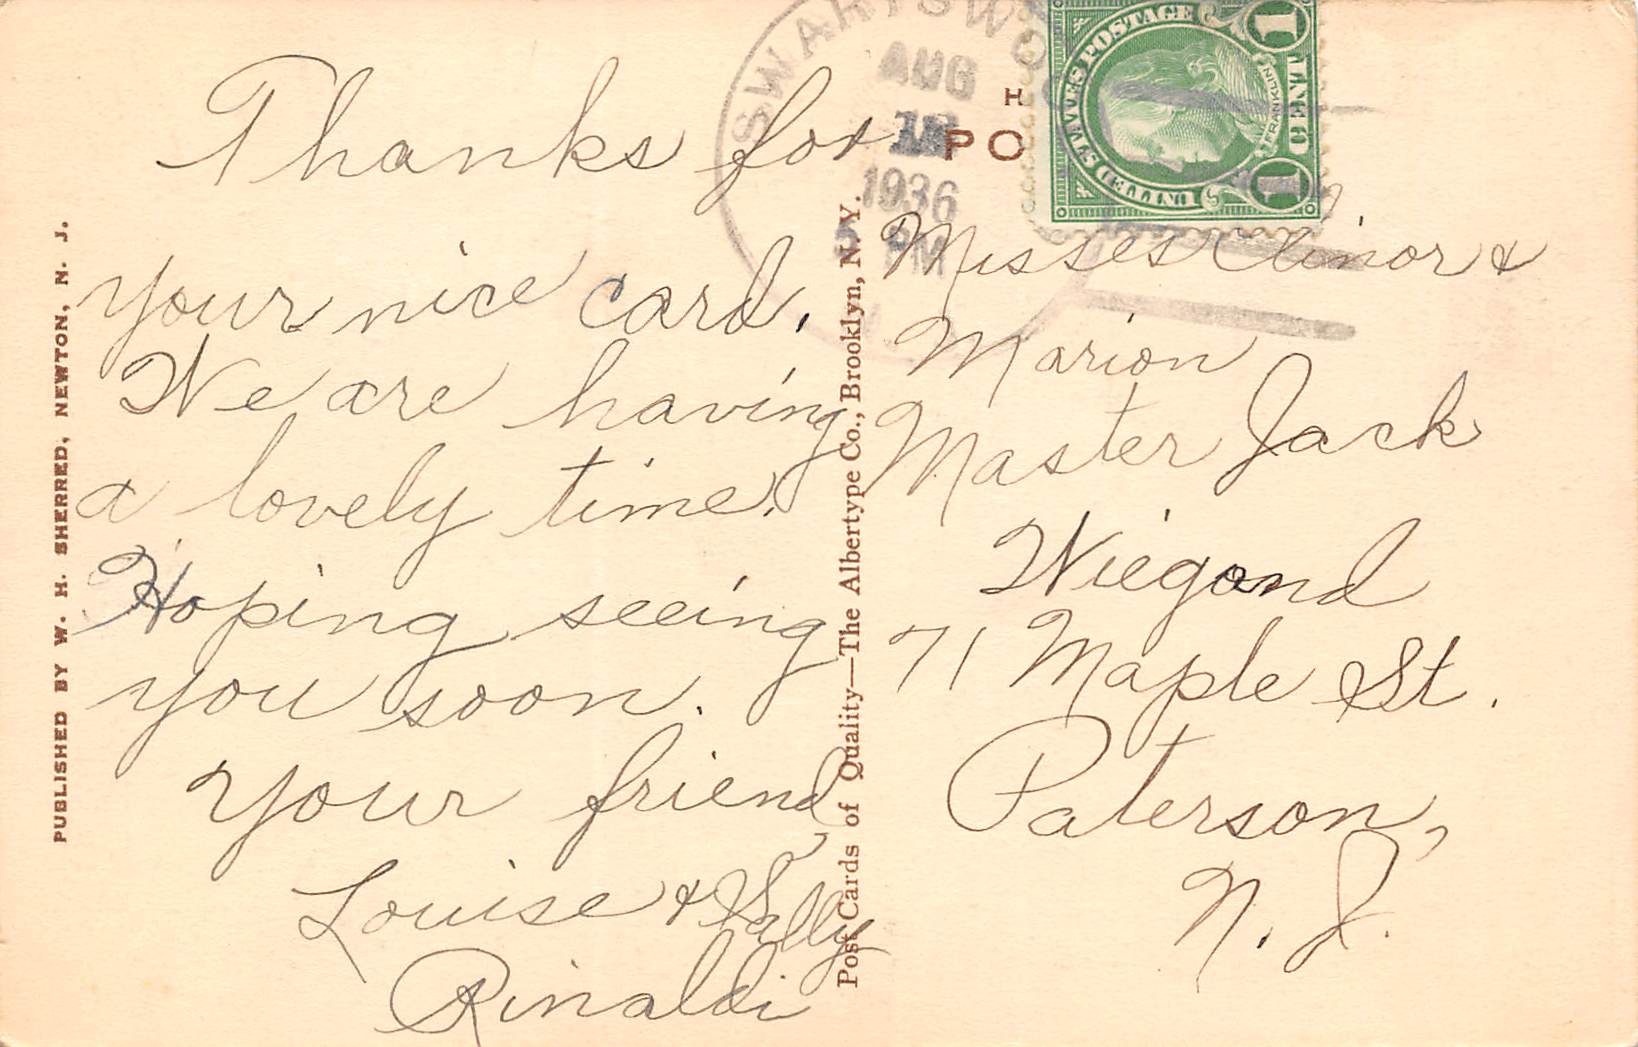 Thanks for
your nice card.
We are having
a lovely time.
Hoping seeing
you soon.
Your friend,
Louise & Sally
Rinaldi
Misses Elinor &
Marion
Master Jack
Wiegand
71 Maple St.
Paterson,
N. J.
SWARTSWO
AUG
1936
PM
H
PO
U.S. POSTAGE
FRANKLIN
1 CENT 1
PUBLISHED BY W. H. SHERRED, NEWTON, N. J.
Post Cards of Quality—The Albertype Co., Brooklyn, N. Y.